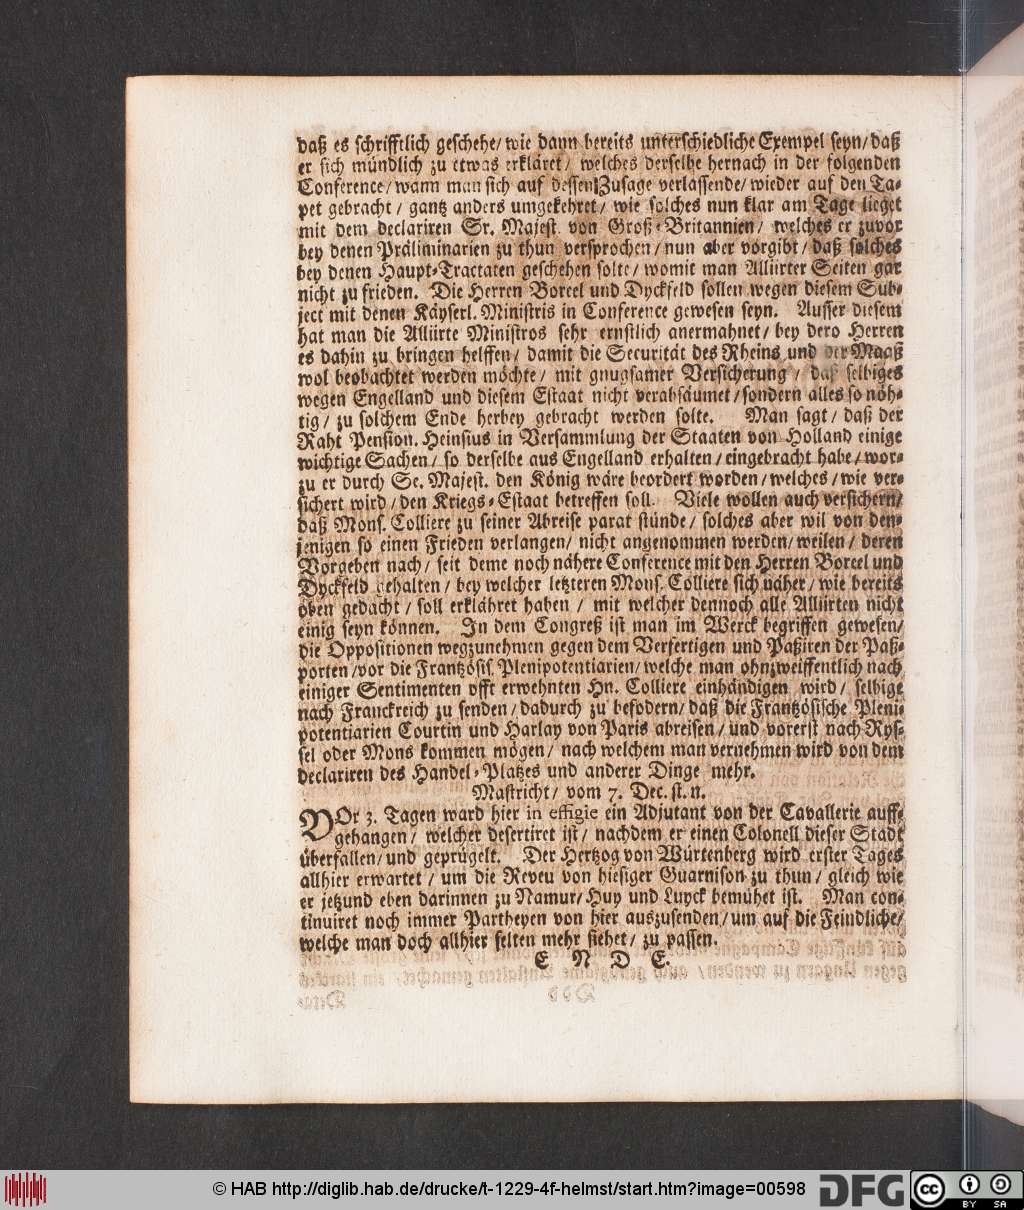 daß es schrifftlich geschehe/ wie dann bereits unterschiedliche Exempel seyn/ daß
er sich mündlich zu etwas erkläret/ welches derselbe hernach in der folgenden
Conference/ wann man sich auf dessen Zusage verlassende/ wieder auf den Ta-
pet gebracht/ gantz anders umgekehret/ wie solches nun klar am Tage lieget
mit dem declariren Sr. Majest. von Groß-Britannien/ welches er zuvor
bey denen Präliminarien zu thun versprochen/ nun aber vorgibt/ daß solches
bey denen Haupt-Tractaten geschehen solte/ womit man Alliirter Seiten gar
nicht zu frieden. Die Herren Boreel und Dyckfeld sollen wegen diesem Sub-
ject mit denen Käyserl. Ministris in Conference gewesen seyn. Ausser diesem
hat man die Alliirte Ministros sehr ernstlich anermahnet/ bey dero Herren
es dahin zu bringen helffen/ damit die Securität des Rheins und der Maaß
wol beobachtet werden möchte/ mit gnugsamer Versicherung/ daß selbiges
wegen Engelland und diesem Estaat nicht verabsäumet/ sondern alles so nöh-
tig/ zu solchem Ende herbey gebracht werden solte. Man sagt/ daß der
Raht Pension. Heinsius in Versammlung der Staaten von Holland einige
wichtige Sachen/ so derselbe aus Engelland erhalten/ eingebracht habe/ wor-
zu er durch Se. Majest. den König wäre beordert worden/ welches/ wie ver-
sichert wird/ den Kriegs-Estaat betreffen soll. Viele wollen auch versichern/
daß Mons. Colliere zu seiner Abreise parat stünde/ solches aber wil von den-
jenigen so einen Frieden verlangen/ nicht angenommen werden/ weilen/ deren
Vorgeben nach/ seit deme noch nähere Conference mit den Herren Boreel und
Dyckfeld gehalten/ bey welcher letzteren Mons. Colliere sich näher/ wie bereits
oben gedacht/ soll erklähret haben/ mit welcher dennoch alle Alliirten nicht
einig seyn können. In dem Congreß ist man im Werck begriffen gewesen/
die Oppositionen wegzunehmen gegen dem Verfertigen und Paßiren der Paß-
porten/ vor die Frantzösis. Plenipotentiarien/ welche man ohnzweiffentlich nach
einiger Sentimenten offt erwehnten Hn. Colliere einhändigen wird/ selbige
nach Franckreich zu senden/ dadurch zu befodern/ daß die Frantzösische Pleni-
potentiarien Courtin und Harlay von Paris abreisen/ und vorerst nach Rys-
sel oder Mons kommen mögen/ nach welchem man vernehmen wird von dem
declariren des Handel-Platzes und anderer Dinge mehr.
Mastricht/ vom 7. Dec. st. n.
VOr 3. Tagen ward hier in effigie ein Adjutant von der Cavallerie auff-
gehangen/ welcher desertiret ist/ nachdem er einen Colonell dieser Stadt
überfallen/ und geprügelt. Der Hertzog von Würtenberg wird erster Tages
allhier erwartet/ um die Reveu von hiesiger Guarnison zu thun/ gleich wie
er jetzund eben darinnen zu Namur/ Huy und Luyck bemühet ist. Man con-
tinuiret noch immer Partheyen von hier auszusenden/ um auf die Feindliche/
welche man doch allhier selten mehr siehet/ zu passen.
E N D E.
© HAB http://diglib.hab.de/drucke/t-1229-4f-helmst/start.htm?image=00598
DFG
cc BY SA